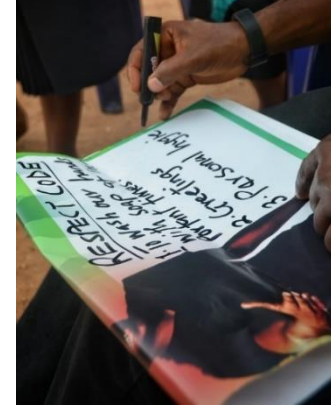 RESPECT CODE
1. To Wash our hands
with Soap
portant times.
2. Greetings
3. Personal hygie